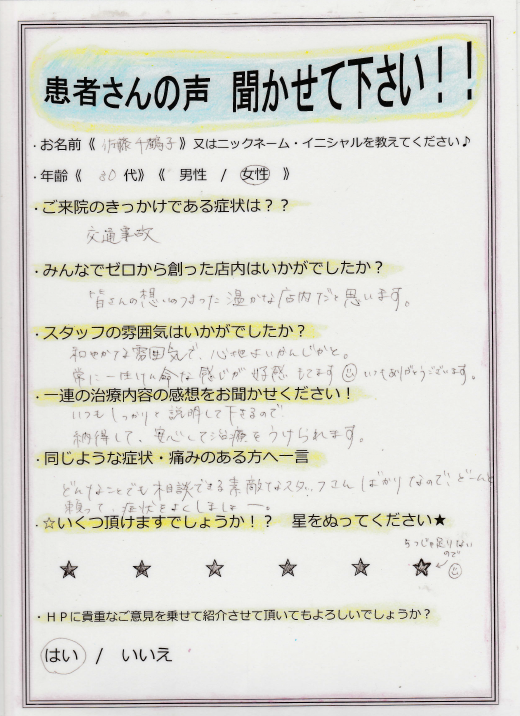 患者さんの声 聞かせて下さい！！
・お名前《 佐藤千鶴子 》又はニックネーム・イニシャルを教えてください♪
・年齢《 30 代》《 男性 / 女性 》
・ご来院のきっかけである症状は？？
交通事故
・みんなでゼロから創った店内はいかがでしたか？
皆さんの想いのつまった温かな店内だと思います。
・スタッフの雰囲気はいかがでしたか？
和やかな雰囲気で、心地よいかんじかと。
常に一生けん命な感じが好感もてます いつもありがとうございます。
・一連の治療内容の感想をお聞かせください！
いつもしっかりと説明して下さるので、
納得して、安心して治療をうけられます。
・同じような症状・痛みのある方へ一言
どんなことでも相談できる素敵なスタッフさんばかりなので、どーんと
頼って、症状をよくしましょー。
・☆いくつ頂けますでしょうか！？ 星をぬってください★
5つじゃ足りない
ので
・ＨＰに貴重なご意見を乗せて紹介させて頂いてもよろしいでしょうか？
はい / いいえ